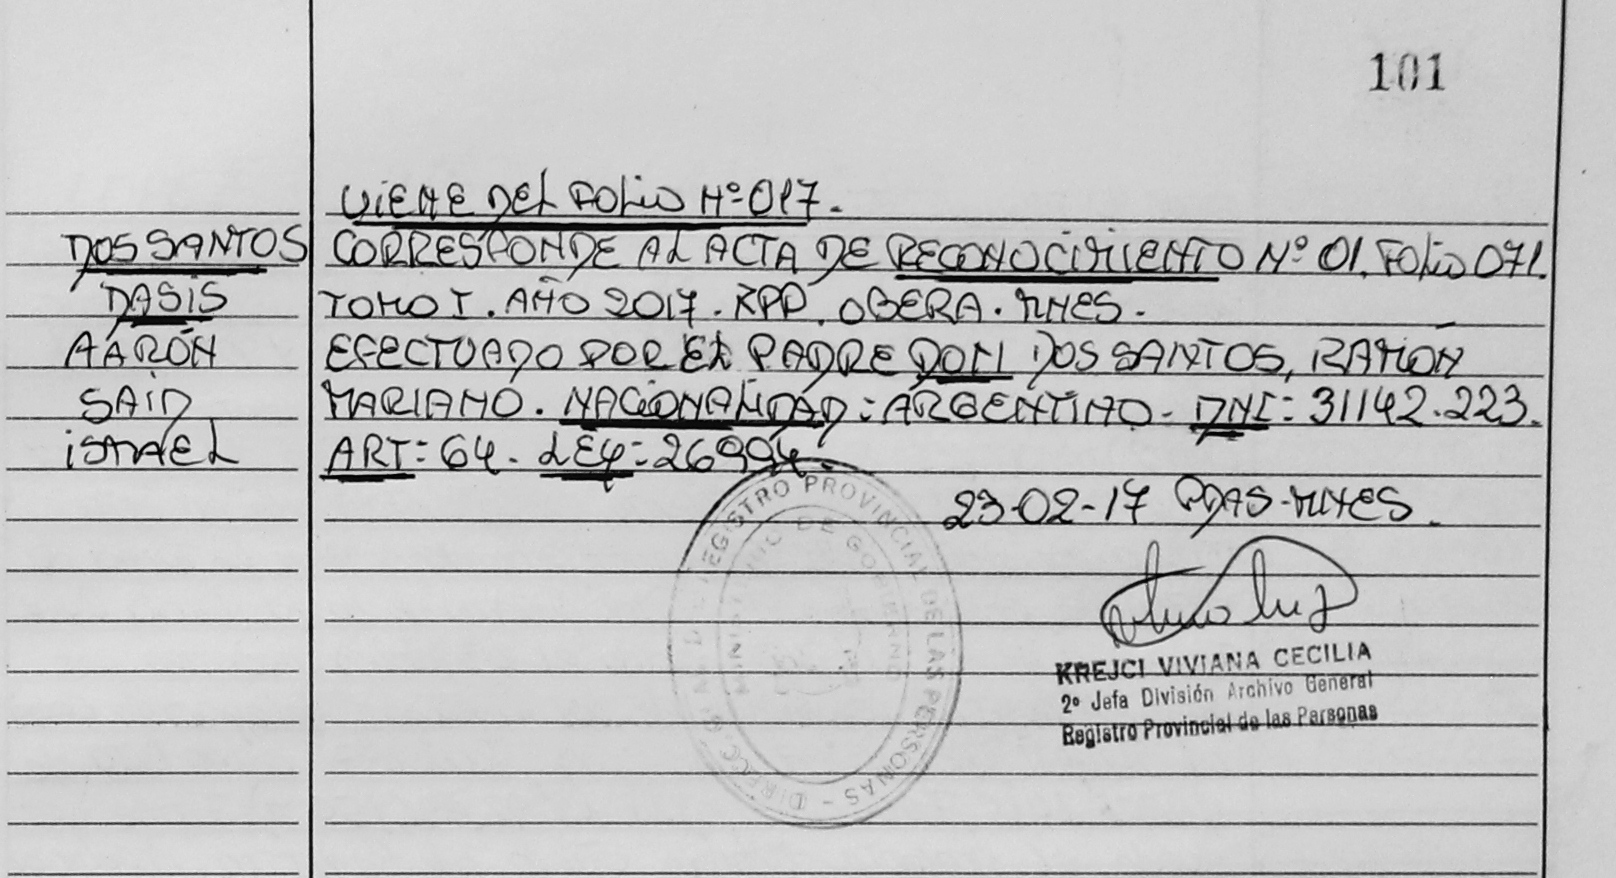 101
VIENE DEL FOLIO Nº 017.
DOS SANTOS
DASIS
AARÓN
SAID
ISMAEL
CORRESPONDE AL ACTA DE RECONOCIMIENTO Nº 01. FOLIO 071.
TOMO I. AÑO 2017. RPP. OBERA. MNES.
EFECTUADO POR EL PADRE DON DOS SANTOS, RAMÓN
MARIANO. NACIONALIDAD: ARGENTINO. DNI: 31142.223.
ART: 64. LEY: 26994.
23-02-17 PDAS-MNES.
REGISTRO PROVINCIAL DE LAS PERSONAS
MINISTERIO DE GOBIERNO
KREJCI VIVIANA CECILIA
2º Jefa División Archivo General
Registro Provincial de las Personas